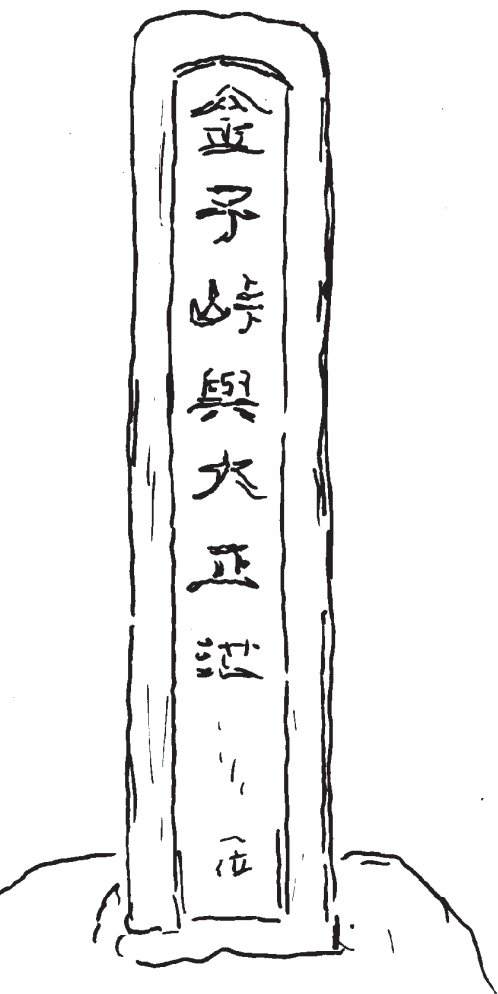 金子峠與大正